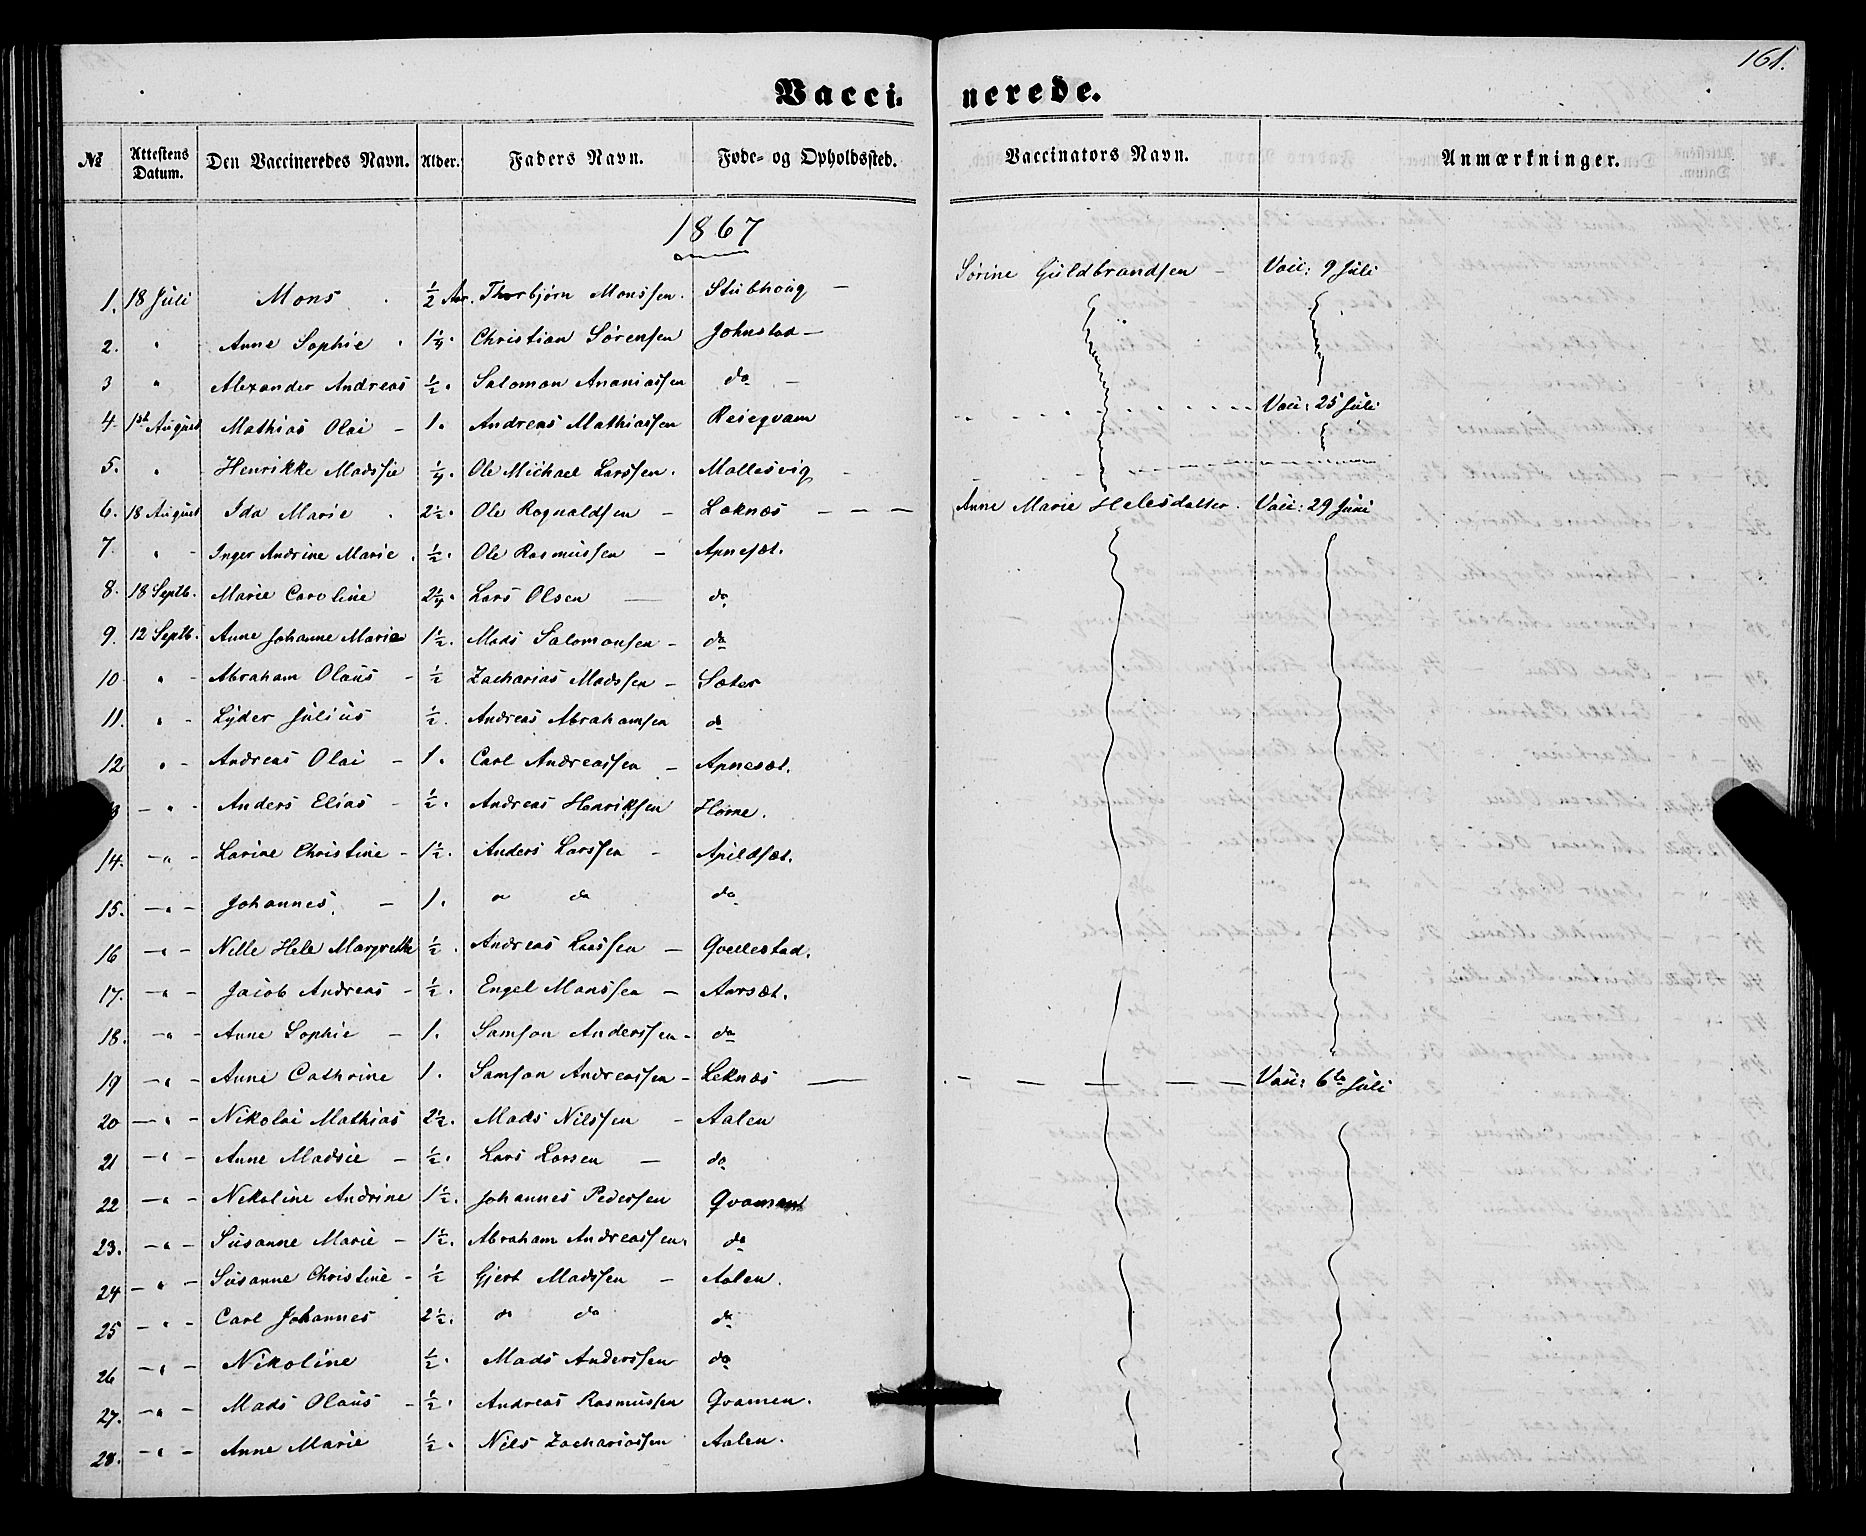 161.
Vaccinerede.
№ | Attestens Datum. | Den Vaccineredes Navn. | Alder. | Faders Navn. | Føde- og Opholdssted. | Vaccinators Navn. | Anmærkninger.
1867
1. | 18 Juli | Mons | ½ Aar. | Thorbjørn Monssen. | Stubhoug | Sørine Guldbrandsen | Vacc: 9 Juli
2. | " | Anne Sophie | 1¼. | Christian Sørensen | Johnstad
3 | " | Alexander Andreas | ½. | Salomon Ananiassen | do
4. | 1st August | Mathias Olai | 1. | Andreas Mathiassen | Reieqvam | | Vacc: 25 Juli
5. | " | Henrikke Madssie | ¼. | Ole Michael Larssen. | Mollesvig
6. | 18 August | Ida Marie | 2½. | Ole Rognaldsen | Leknæs | Anne Marie Helesdatter. | Vacc: 29 Juni
7. | " | Inger Andrine Marie | ½. | Ole Rasmussen | Apnesæt.
8. | 18 Septb. | Marie Caroline | 2¼. | Lars Olsen | do
9. | 12 Septb. | Anne Johanne Marie | 1½. | Mads Salomonsen | do
10 | " | Abraham Olaus | ½ | Zacharias Madssen | Sæter
11. | " | Lyder Julius | ½. | Andreas Abrahamsen | do
12 | " | Andreas Olai | 1. | Carl Andreassen | Apnesæt.
3 | " | Anders Elias | ½. | Andreas Henriksen | Horne.
14. | " | Larine Christine | 1½. | Anders Larssen | Apildsæt.
15. | " | Johannes. | 1. | do do | do
16 | " | Nille Hele Margrethe | ½. | Andreas Larssen | Qvellestad.
17. | " | Jacob Andreas | ½. | Engel Monssen | Aarsæt.
18. | " | Anne Sophie | 1. | Samson Anderssen | do
19 | " | Anne Cathrine | 1. | Samson Andreassen | Leknæs | | Vacc: 6te Juli
20 | " | Nikolai Mathias | 2½. | Mads Nilssen | Aalen
21 | " | Anne Madsie | ½. | Lars Larsen | do
22 | " | Nekoline Andrine | 1½. | Johannes Pedersen | Qvamen
23. | " | Susanne Marie | 1½. | Abraham Andreassen. | do
24 | " | Susanne Christine | ½ | Gjert Madssen | Aalen.
25 | " | Carl Johannes | 2½. | do do | do
26 | " | Nikoline | ½. | Mads Anderssen | do
27. | " | Mads Olaus | ½. | Andreas Rasmussen | Qvamen.
28. | " | Anne Marie | ½. | Nils Zachariassen | Aalen.